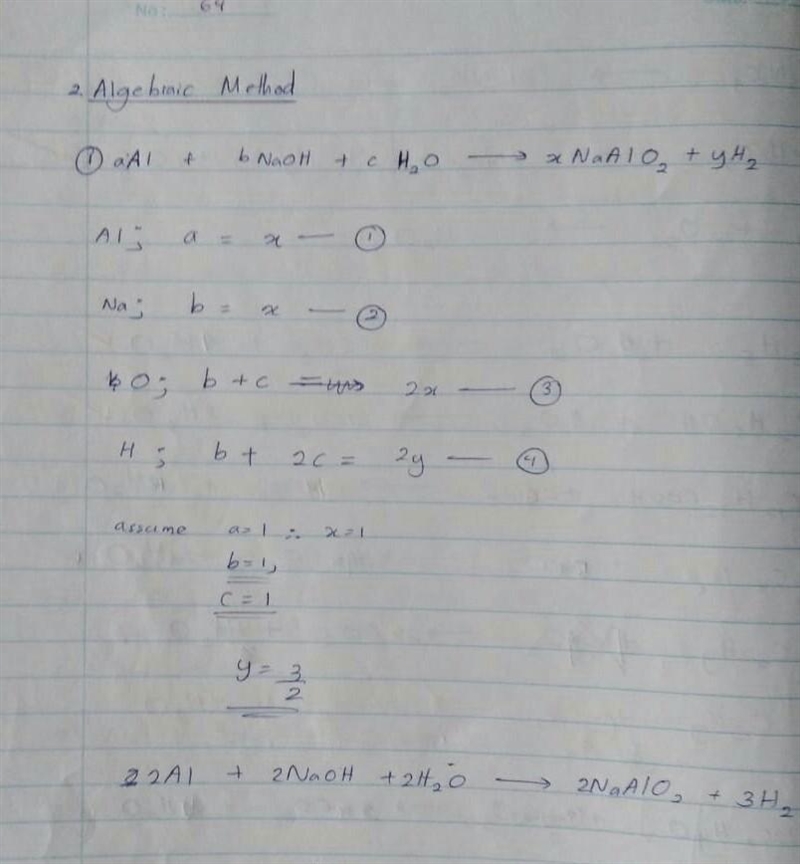 No: 64
2. Algebraic Method
① aAl + bNaOH + c H₂O → x NaAlO₂ + yH₂
Al; a = x — ①
Na; b = x — ②
O; b + c = 2x — ③
H; b + 2c = 2y — ④
assume a=1 ∴ x=1
b=1,
c = 1
y = 3/2
2Al + 2NaOH + 2H₂O → 2NaAlO₂ + 3H₂